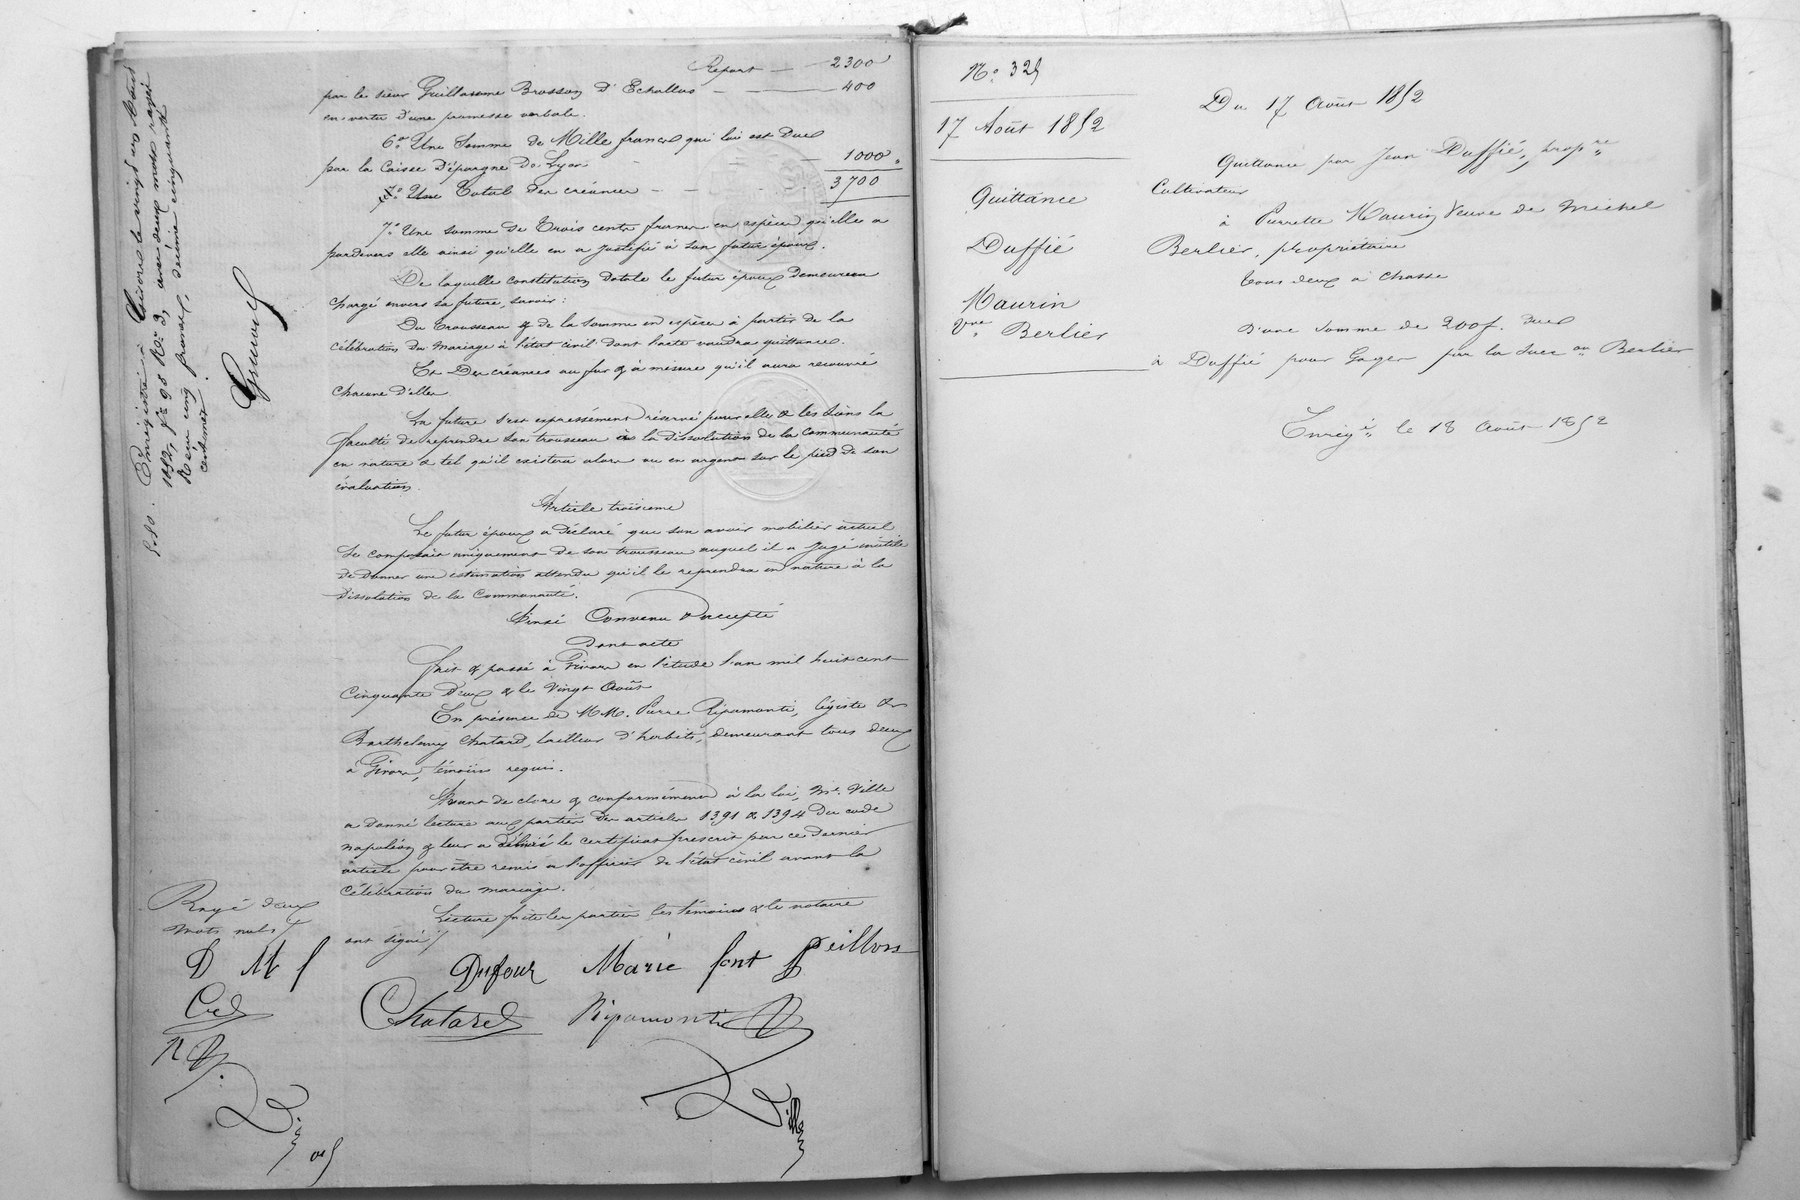 Report — 2300
par le sieur Guillaume Brosson d'Echallas — 400
en vertu d'une promesse verbale.
6° Une Somme de Mille francs qui lui est due
par la Caisse d'épargne De Lyon 1000
Total des créances 3700
7° Une somme de Trois cents francs en espèces qu'elle a
pardevers elle ainsi qu'elle en a justifié à son futur époux.
De laquelle constitution dotale le futur époux demeurera
chargé envers sa future, savoir:
Du Trousseau & de la Somme en espèces à partir de la
célébration du mariage à l'état civil dont l'acte vaudra quittance.
Et Des créances au fur & à mesure qu'il aura recouvré
chacune d'elles.
La future s'est expressément réservé pour elle & les siens la
faculté de reprendre son trousseau à la dissolution de la communauté
en nature & tel qu'il existera alors ou en argent sur le pied de son
évaluation.
Article troisième
Le futur époux a déclaré que son avoir mobilier actuel
se composait uniquement de son trousseau auquel il a jugé inutile
de donner une estimation attendu qu'il le reprendra en nature à la
dissolution de la communauté.
Ainsi Convenu & accepté
Dont acte
Fait & passé à Givors en l'étude l'an mil huit cent
cinquante deux & le vingt Août
En présence de MM. Pierre Ripamonti, légiste &
Barthelemy Chatard, tailleur d'habits, demeurant tous deux
à Givors, témoins requis.
Avant de clore & conformément à la loi, Mt. Ville
a donné lecture aux parties des articles 1391 & 1394 du code
napoléon & leur a délivré le certificat prescrit par ce dernier
article pour être remis à l'officier de l'état civil avant la
célébration du mariage.
Lecture faite les parties les témoins & le notaire
ont signé
Dufour Marie font peillon
Chatard Ripamonti
Ville
Rayé deux
mots nuls
D M f
Enregistré à Givors le vingt un Août
1852, f° 98 R° 3, avec deux mots rayés
Reçu cinq francs, décime cinquante
centimes.
5.50.
N° 325
17 Août 1852
Quittance
Duffié
Maurin
Vve Berlier
Du 17 Août 1852
Quittance par Jean Duffié, propre
Cultivateur
à Pierrette Maurin Veuve de Michel
Berlier, propriétaire
tous deux à Chasse
D'une somme de 200f. due
à Duffié pour Gages par la succon Berlier
Enregé le 18 Août 1852